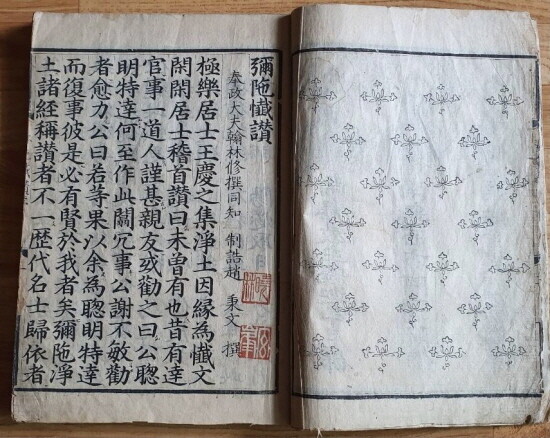 彌陀懺讚
奉政大夫翰林修撰同知 制誥趙 秉文 撰
極樂居士王慶之集淨土因緣為懺文
閑閑居士稽首讚曰未曾有也昔有達
官事一道人謹甚親友或勸之曰公聰
明特達何至作此闒冗事公謝不敏勸
者愈力公曰若等果以余為聰明特達
而復事彼是必有賢於我者矣彌陀淨
土諸經稱讚者不一歷代名士歸依者